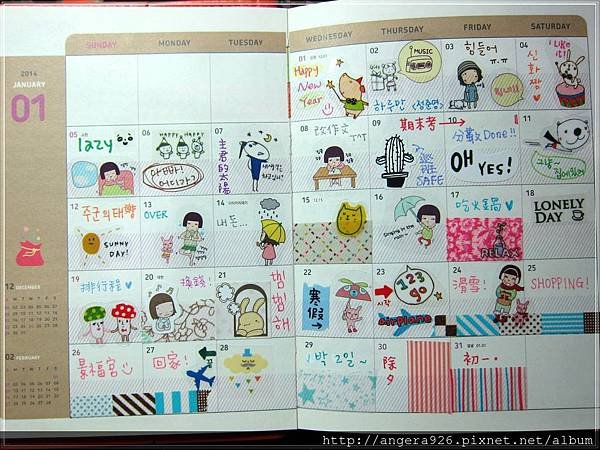 SUNDAY MONDAY TUESDAY WEDNESDAY THURSDAY FRIDAY SATURDAY
2014
JANUARY
01
01
Happy
New
Year!
02
I♥MUSIC
하루만
03
힘들어
ㅠ.ㅠ
04
I LIKE
IT!
신화짱♥
05
lazy
06
HAPPY HAPPY
아빠!
어디가?
07
主君的太陽
08
改作文
T^T
09
期末考
SAFE
10
分散 Done!!
OH
YES!
11
12
주군의태양
SUNNY
DAY!
13
OVER
14
내 돈...
15
16
Singing in the
rain~
17
吃火鍋♥
RELAX
18
LONELY
DAY
19
排行程♥
20
換錢!
21
빙빙해
22
寒假
23
시작
123
go
airplane
24
滑雪!
25
SHOPPING!
26
景福宮
27
回家!
28
29
1박 2일~
30
除夕
31
初一.
12 DECEMBER
02 FEBRUARY
http://angera926.pixnet.net/album